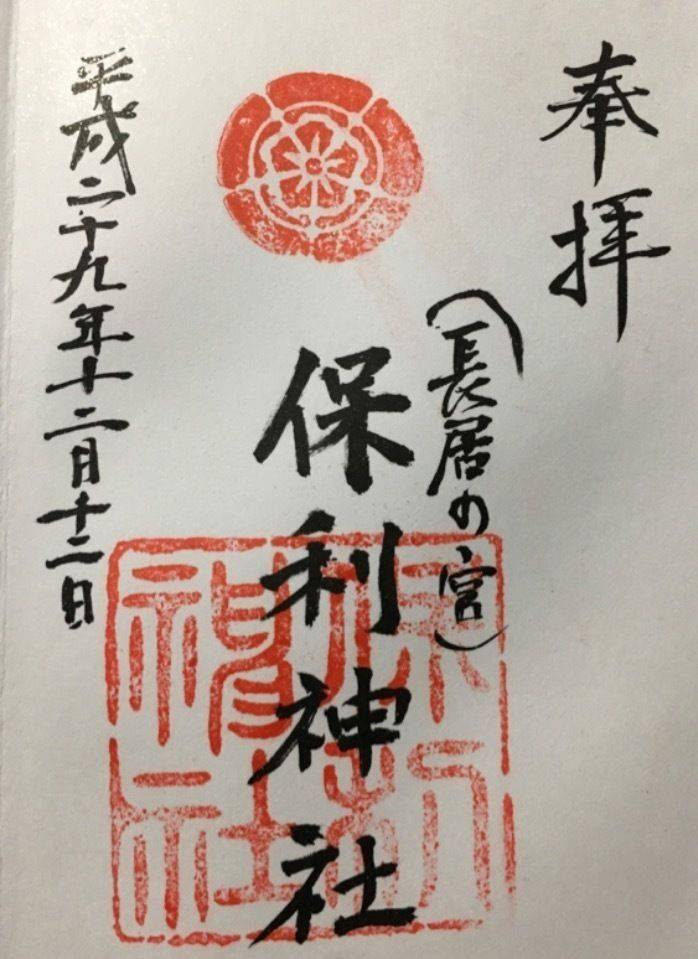 奉拝
（長居の宮）
保利神社
平成二十九年十二月十二日
保利神社